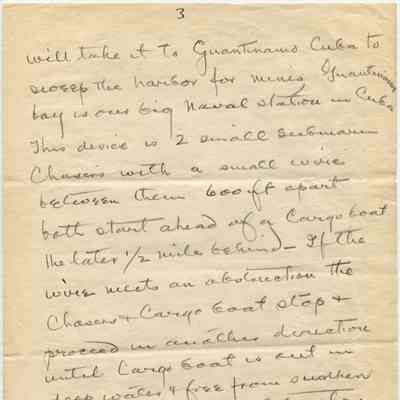 3
will take it to Guantinamo Cuba to
sweep the harbor for mines Guantinamo
bay is our big Naval station in Cuba
This device is 2 small submarine
Chasers with a small wire
between them 600 ft apart
both start ahead of a Cargo boat
the later 1/2 mile behind - If the
wire meets an obstruction the
Chasers & Cargo boat stop &
proceed in another direction
until Cargo boat is out in
deep water & free from sunken